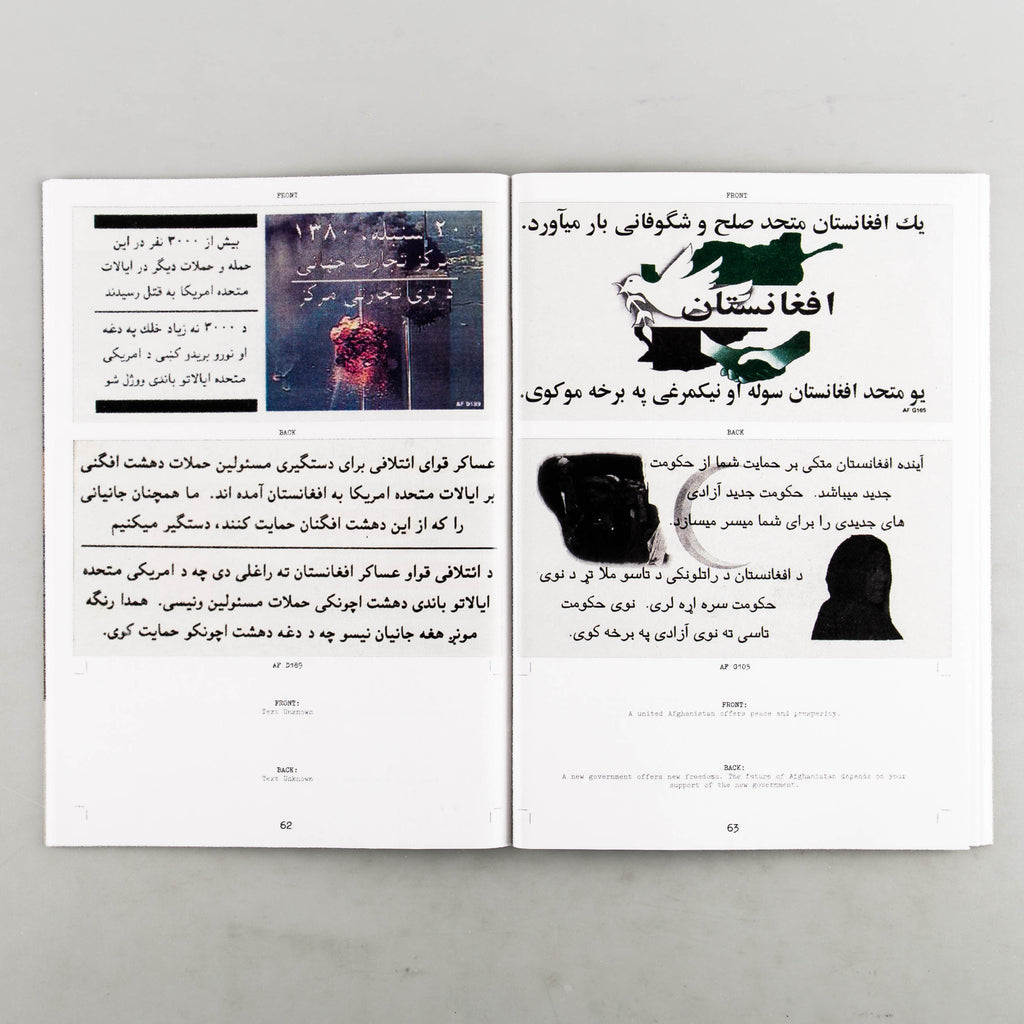 FRONT
بیش از ۳۰۰۰ نفر در این
حمله و حملات دیگر در ایالات
متحده امریکا به قتل رسیدند
د ۳۰۰۰ نه زیاد خلك په دغه
او نورو بریدو کښی د امریکی
متحده ایالاتو باندی ووژل شو
۲۰ سنبله، ۱۳۸۰
مرکز تجارت جهانی
د نړی تجارتی مرکز
AF D189
BACK
عساکر قوای ائتلافی برای دستگیری مسئولین حملات دهشت افگنی
بر ایالات متحده امریکا به افغانستان آمده اند. ما همچنان جانیانی
را که از این دهشت افگنان حمایت کنند، دستگیر میکنیم
د ائتلافی قواو عساکر افغانستان ته راغلی دی چه د امریکی متحده
ایالاتو باندی دهشت اچونکی حملات مسئولین ونیسی. همدا رنگه
مونږ هغه جانیان نیسو چه د دغه دهشت اچونکو حمایت کوی.
AF D189
FRONT:
Text Unknown
BACK:
Text Unknown
62
FRONT
یك افغانستان متحد صلح و شگوفانی بار میآورد.
افغانستان
یو متحد افغانستان سوله او نیکمرغی په برخه موکوی.
AF G105
BACK
آینده افغانستان متکی بر حمایت شما از حکومت
جدید میباشد. حکومت جدید آزادی
های جدیدی را برای شما میسر میسازد.
د افغانستان د راتلونکی د تاسو ملا تړ د نوی
حکومت سره اړه لری. نوی حکومت
تاسی ته نوی آزادی په برخه کوی.
AF G105
FRONT:
A united Afghanistan offers peace and prosperity.
BACK:
A new government offers new freedoms. The future of Afghanistan depends on your
support of the new government.
63